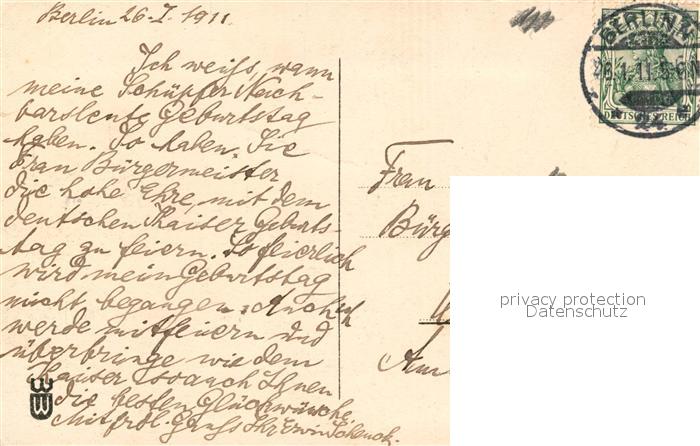 Berlin 26. I. 1911.
Ich weiß, wann
meine Schüpfer Nach-
barsleute Geburtstag
haben. So haben Sie
Frau Bürgermeister
die hohe Ehre, mit dem
deutschen Kaiser Geburts-
tag zu feiern. So feierlich
wird mein Geburtstag
nicht begangen. Auch ich
werde mitfeiern und
überbringe wie dem
Kaiser so auch Ihnen
die besten Glückwünsche
Mit frdl. Gruß Ihr Erwin Schenck.
BERLIN N.
26.1.11.5-6N
* 24 *
DEUTSCHES REICH
Frau
Bürg
Am
privacy protection
Datenschutz
W